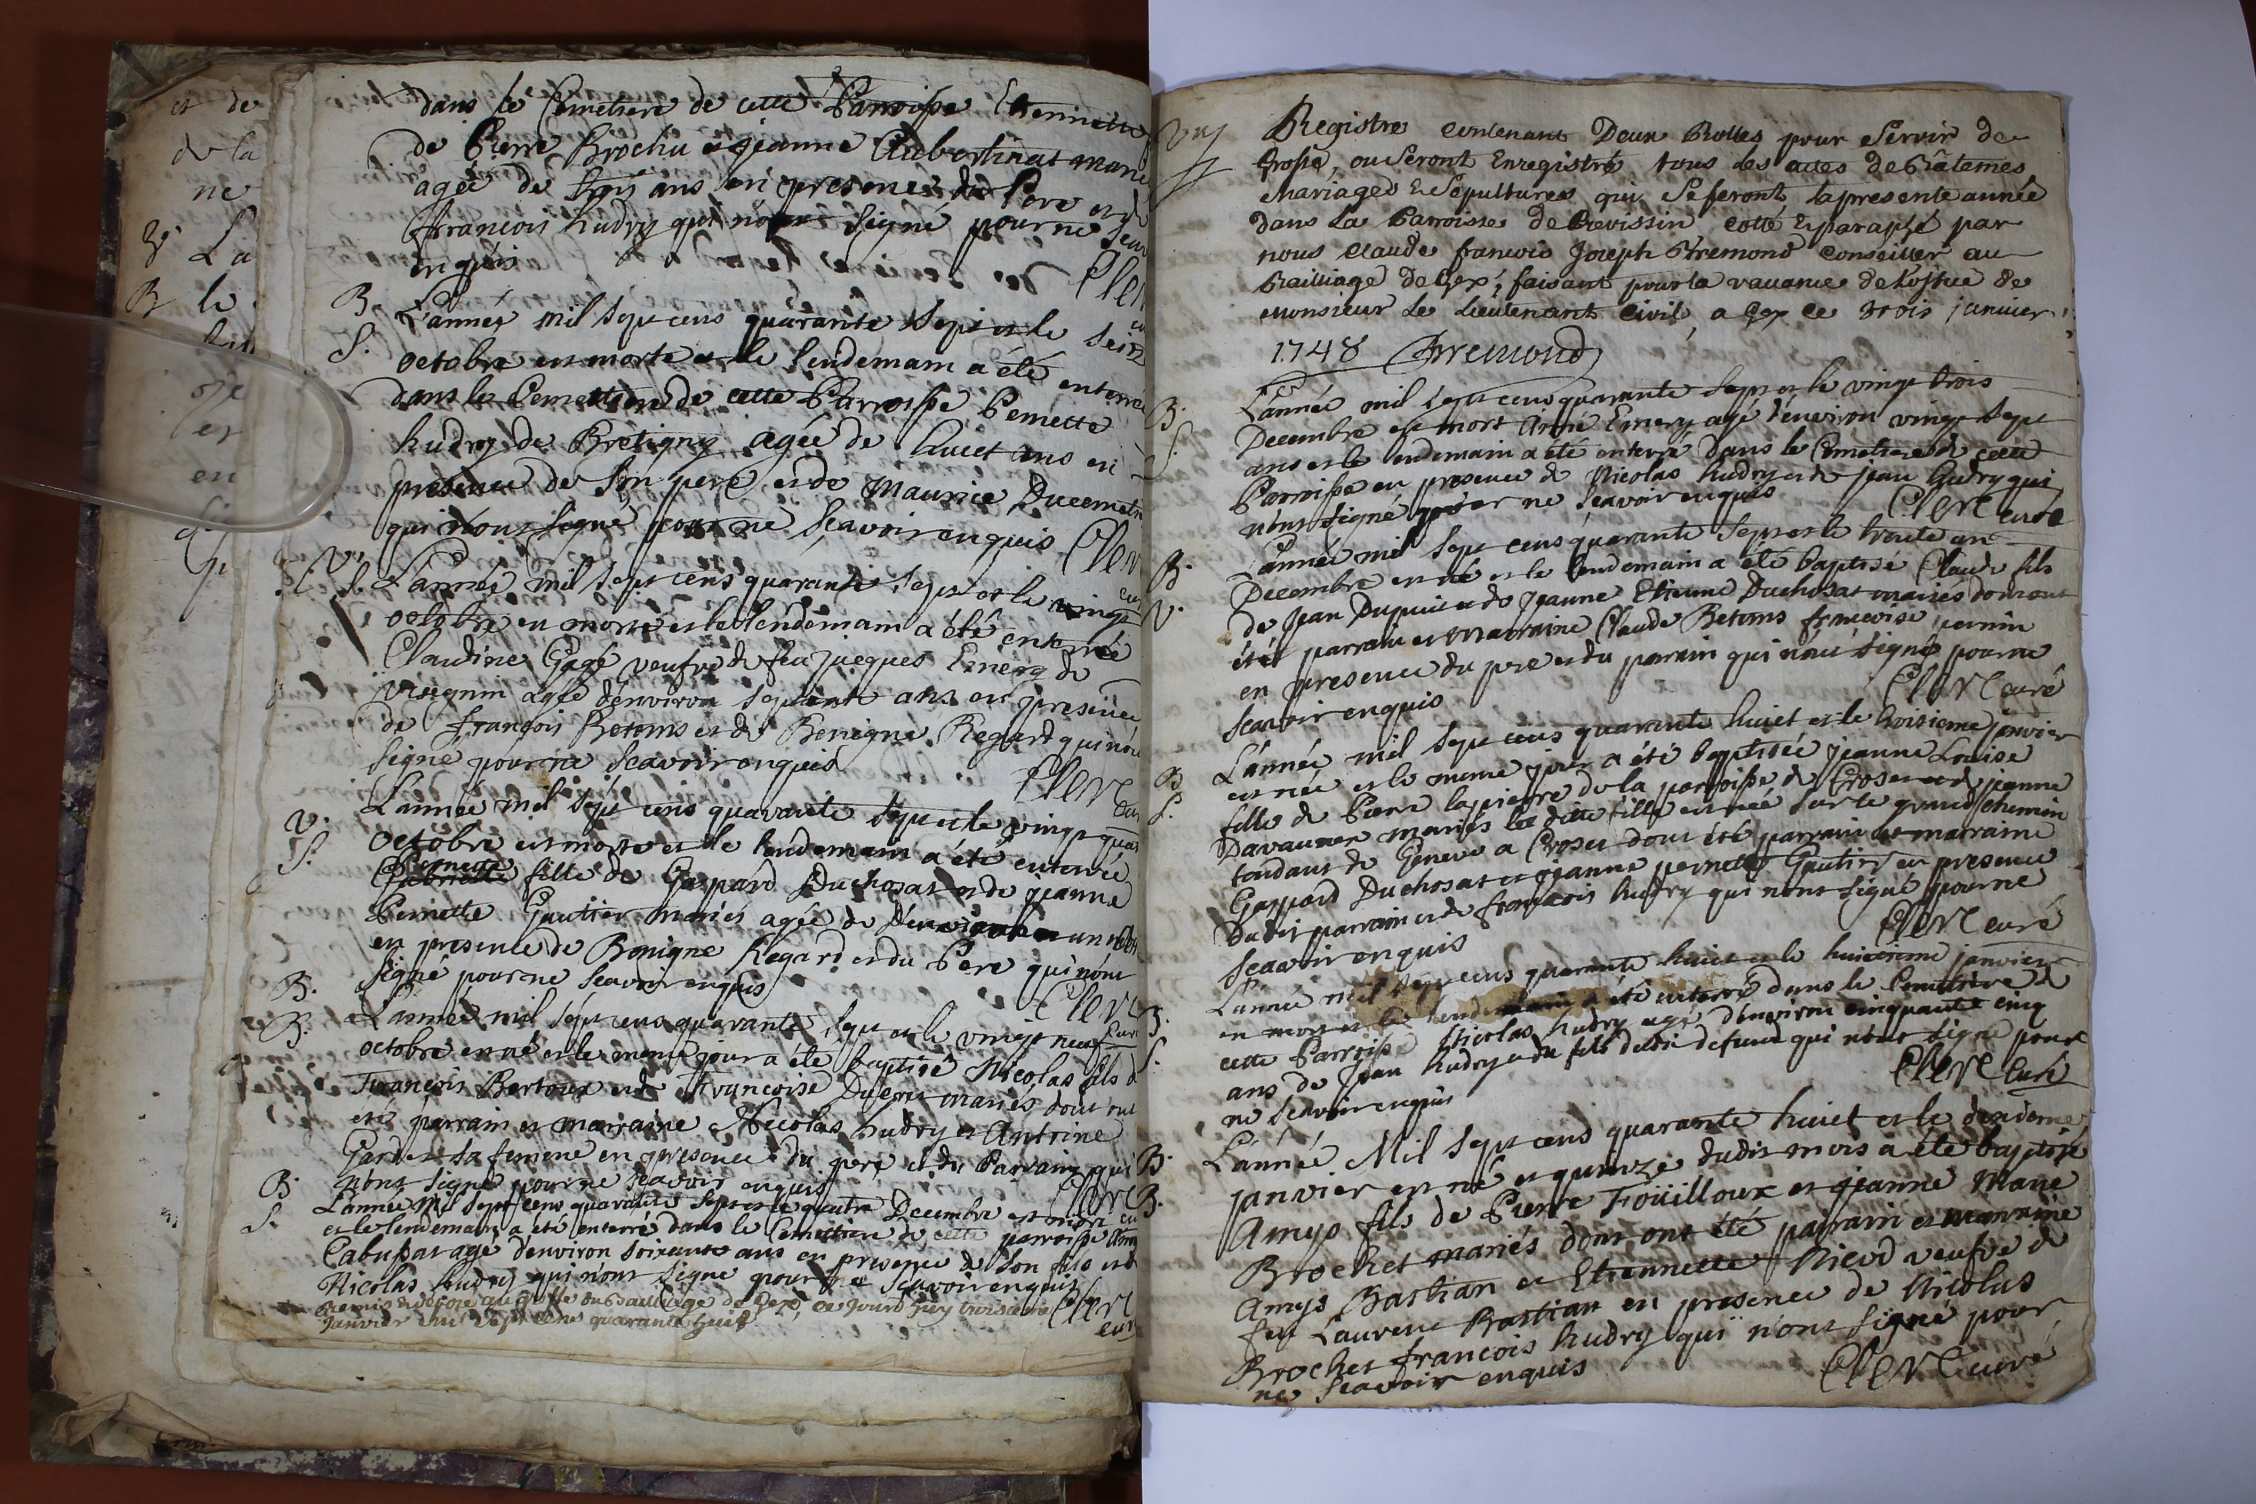 dans le Cemetiere de cette Parroisse Etiennette
de Pierre Brochu et jeanne mariés
agée de trois ans en presence du Pere et de
françois hudry qui n'ont signé pour ne scav
enquis
Cler
B.
S.
L'année mil sept cens quarante sept et le seiz
octobre est morte et le lendemain a été enterrée
dans le Cemetiere de cette Parroisse Pernette
hudry de Bretigny agée de huict ans en
presence de son pere et de Maurice Ducemetie
qui n'ont signé pour ne scavoir enquis
Cler
V.
S.
L'année mil sept cens quarante sept et le vingt
octobre est morte et le lendemain a été enterrée
Claudine Gagé veufve de feu jacques Emery de
vesegnin agée d'environ septante ans en presence
de françois Betems et de Benigne Regard qui n'ont
signé pour ne scavoir enquis
Clerc
V.
S.
L'année mil sept cens quarante sept et le vingt quat
octobre est morte et le lendemain a été enterrée
Pernette
fille de Gaspard Duchosat et de jeanne
Pernette Gautier mariés agée de
en presence de Benigne Regard et du Pere qui n'ont
signé pour ne scavoir enquis
Clerc
B.
B.
L'année mil sept cens quarante sept et le vingt neuf
octobre est né et le meme jour a été baptisé Nicolas fils d
François Bertoux et de Françoise Ducret mariés dont ont
été parrain et marraine Nicolas hudry et Antoine
Gardet sa femme en presence du pere et du Parrain qui
n'ont signé pour ne scavoir enquis
Clerc
B.
S.
L'année mil sept cens quarante sept et le quatre Decembre est mort
et le lendemain a été enterré dans le Cemetiere de cette parroisse
Cabussat agé d'environ soixante ans en presence de son fils et de
Nicolas hudry qui n'ont signé pour ne scavoir enquis
Clerc
curé
Remis au Greffe du Bailliage de Gex, ce jourd'huy troisieme
janvier mil sept cens quarante huit
Registre contenant Deux Rolles pour servir de
grosse, ou seront Enregistré tous les actes de Batemes
Mariages & Sepultures qui se feront la presente année
dans La Parroisse de Previssin cotté & paraphé par
nous Claude francois Joseph fremond Conseiller au
Bailliage de Gex, faisant pour la vacance de L'office de
Monsieur Le Lieutenant Civil, a Gex ce trois janvier
1748 fremond
B.
S.
L'année mil sept cens quarante sept et le vingt trois
Decembre est mort Aimé Emery agé d'environ vingt sept
ans et le lendemain a été enterré dans le Cemetiere de cette
Parroisse en presence de Nicolas hudry et de jean hudry qui
n'ont signé pour ne scavoir enquis
Clerc curé
B.
V.
L'année mil sept cens quarante sept et le trente un
Decembre est né et le lendemain a été baptisé Claude fils
de jean Dupuit et de jeanne Etienne Duchosat mariés dont ont
été parrain et marraine Claude Betems françoise pernin
en presence du pere et du parrain qui n'ont signé pour ne
scavoir enquis
Clerc curé
B.
S.
L'année mil sept cens quarante huict et le troisieme janvier
est née et le meme jour a été baptisée jeanne Louise
fille de Piere lapierre de la parroisse de Croset et de jeanne
Davaumen mariés la ditte fille est née sur le grand chemin
tendant de Geneve a Croset dont été parrain et marraine
Gaspard Duchosat et jeanne pernette Gautier en presence
dudit parrain et de françois hudry qui n'ont signé pour ne
scavoir enquis
Clerc curé
B.
S.
L'année mil sept cens quarante huict et le huictieme janvier
est mort et le lendemain a été enterré dans le Cemetiere de
cette Parroisse Nicolas hudry agé d'environ cinquante cinq
ans de jean hudry et du fils dudit defunct qui n'ont signé pour
ne scavoir enquis
Clerc Curé
B.
B.
L'année Mil sept cens quarante huict et le
janvier est né et quinze dudit mois a été baptisé
Amyo fils de Pierre Foüilloux et jeanne Marie
Brochet mariés dont ont été parrain et marraine
Amyo Bastian et Etiennette Nicod veufve de
feu Laurent Bastian en presence de Nicolas
Brochet françois hudry qui n'ont signé pour
ne scavoir enquis
Clerc curé